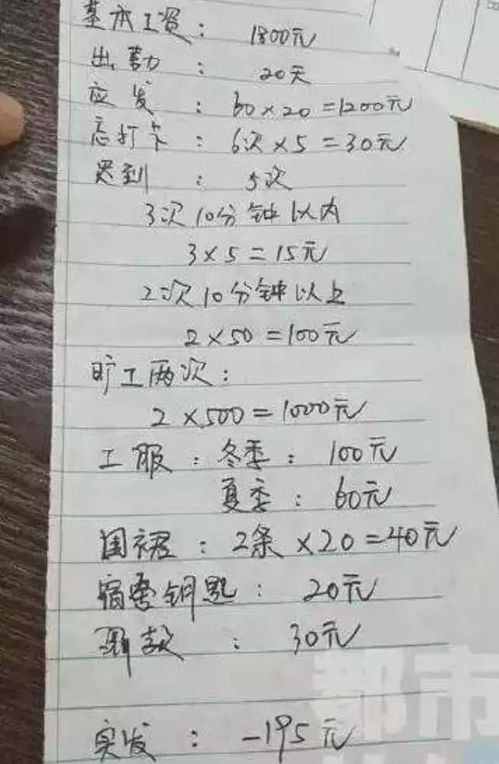 基本工资: 1800元
出勤: 20天
应发: 60×20=1200元
忘打卡: 6次×5=30元
迟到: 5次
3次10分钟以内
3×5=15元
2次10分钟以上
2×50=100元
旷工两次:
2×500=1000元
工服: 冬季: 100元
夏季: 60元
围裙: 2条×20=40元
宿舍钥匙: 20元
罚款: 30元
实发: -195元
都市